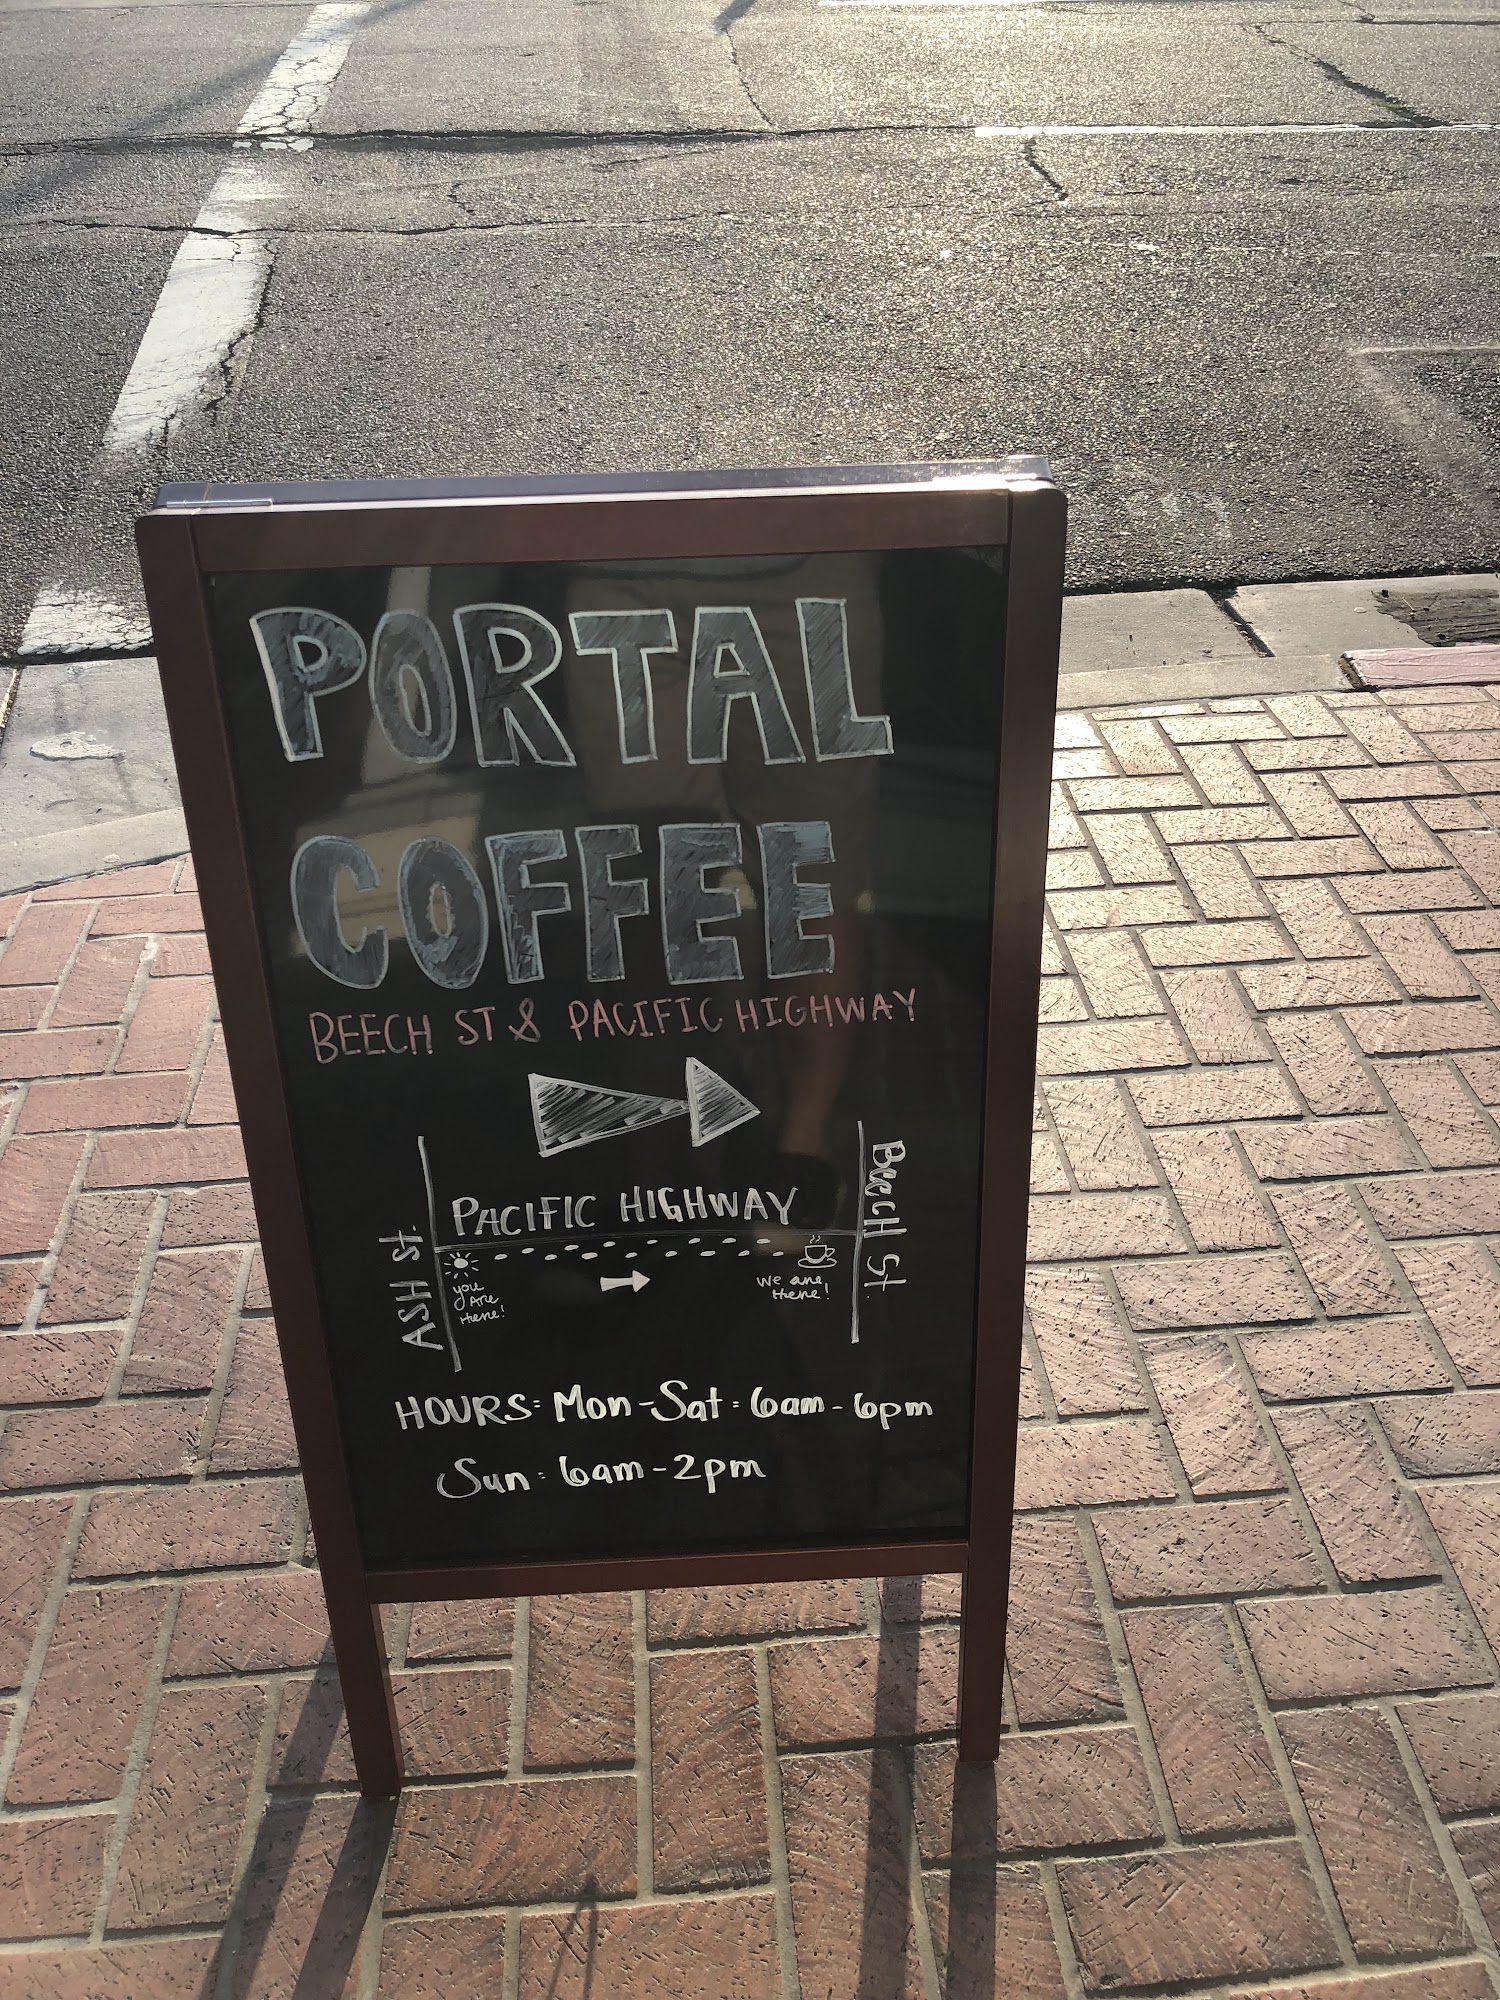 PORTAL
COFFEE
BEECH ST & PACIFIC HIGHWAY
PACIFIC HIGHWAY
ASH St.
Beech St.
you
Are
Here!
We are
Here!
HOURS: Mon-Sat: 6am-6pm
Sun: 6am-2pm